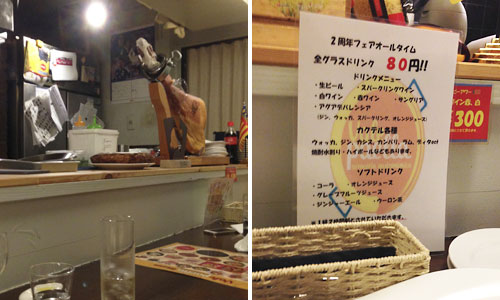 2周年フェアオールタイム
全グラスドリンク 80円!!
ドリンクメニュー
・生ビール ・スパークリングワイン
・白ワイン ・赤ワイン ・サングリア
・アグアデバレンシア
(ジン、ウォッカ、スパークリング、オレンジジュース)
カクテル各種
ウォッカ、ジン、カシス、カンパリ、ラム、ディタetc
焼酎水割り・ハイボールなどもあります。
ソフトドリンク
・コーラ ・オレンジジュース
・グレープフルーツジュース
・ジンジャーエール ・ウーロン茶
¥300